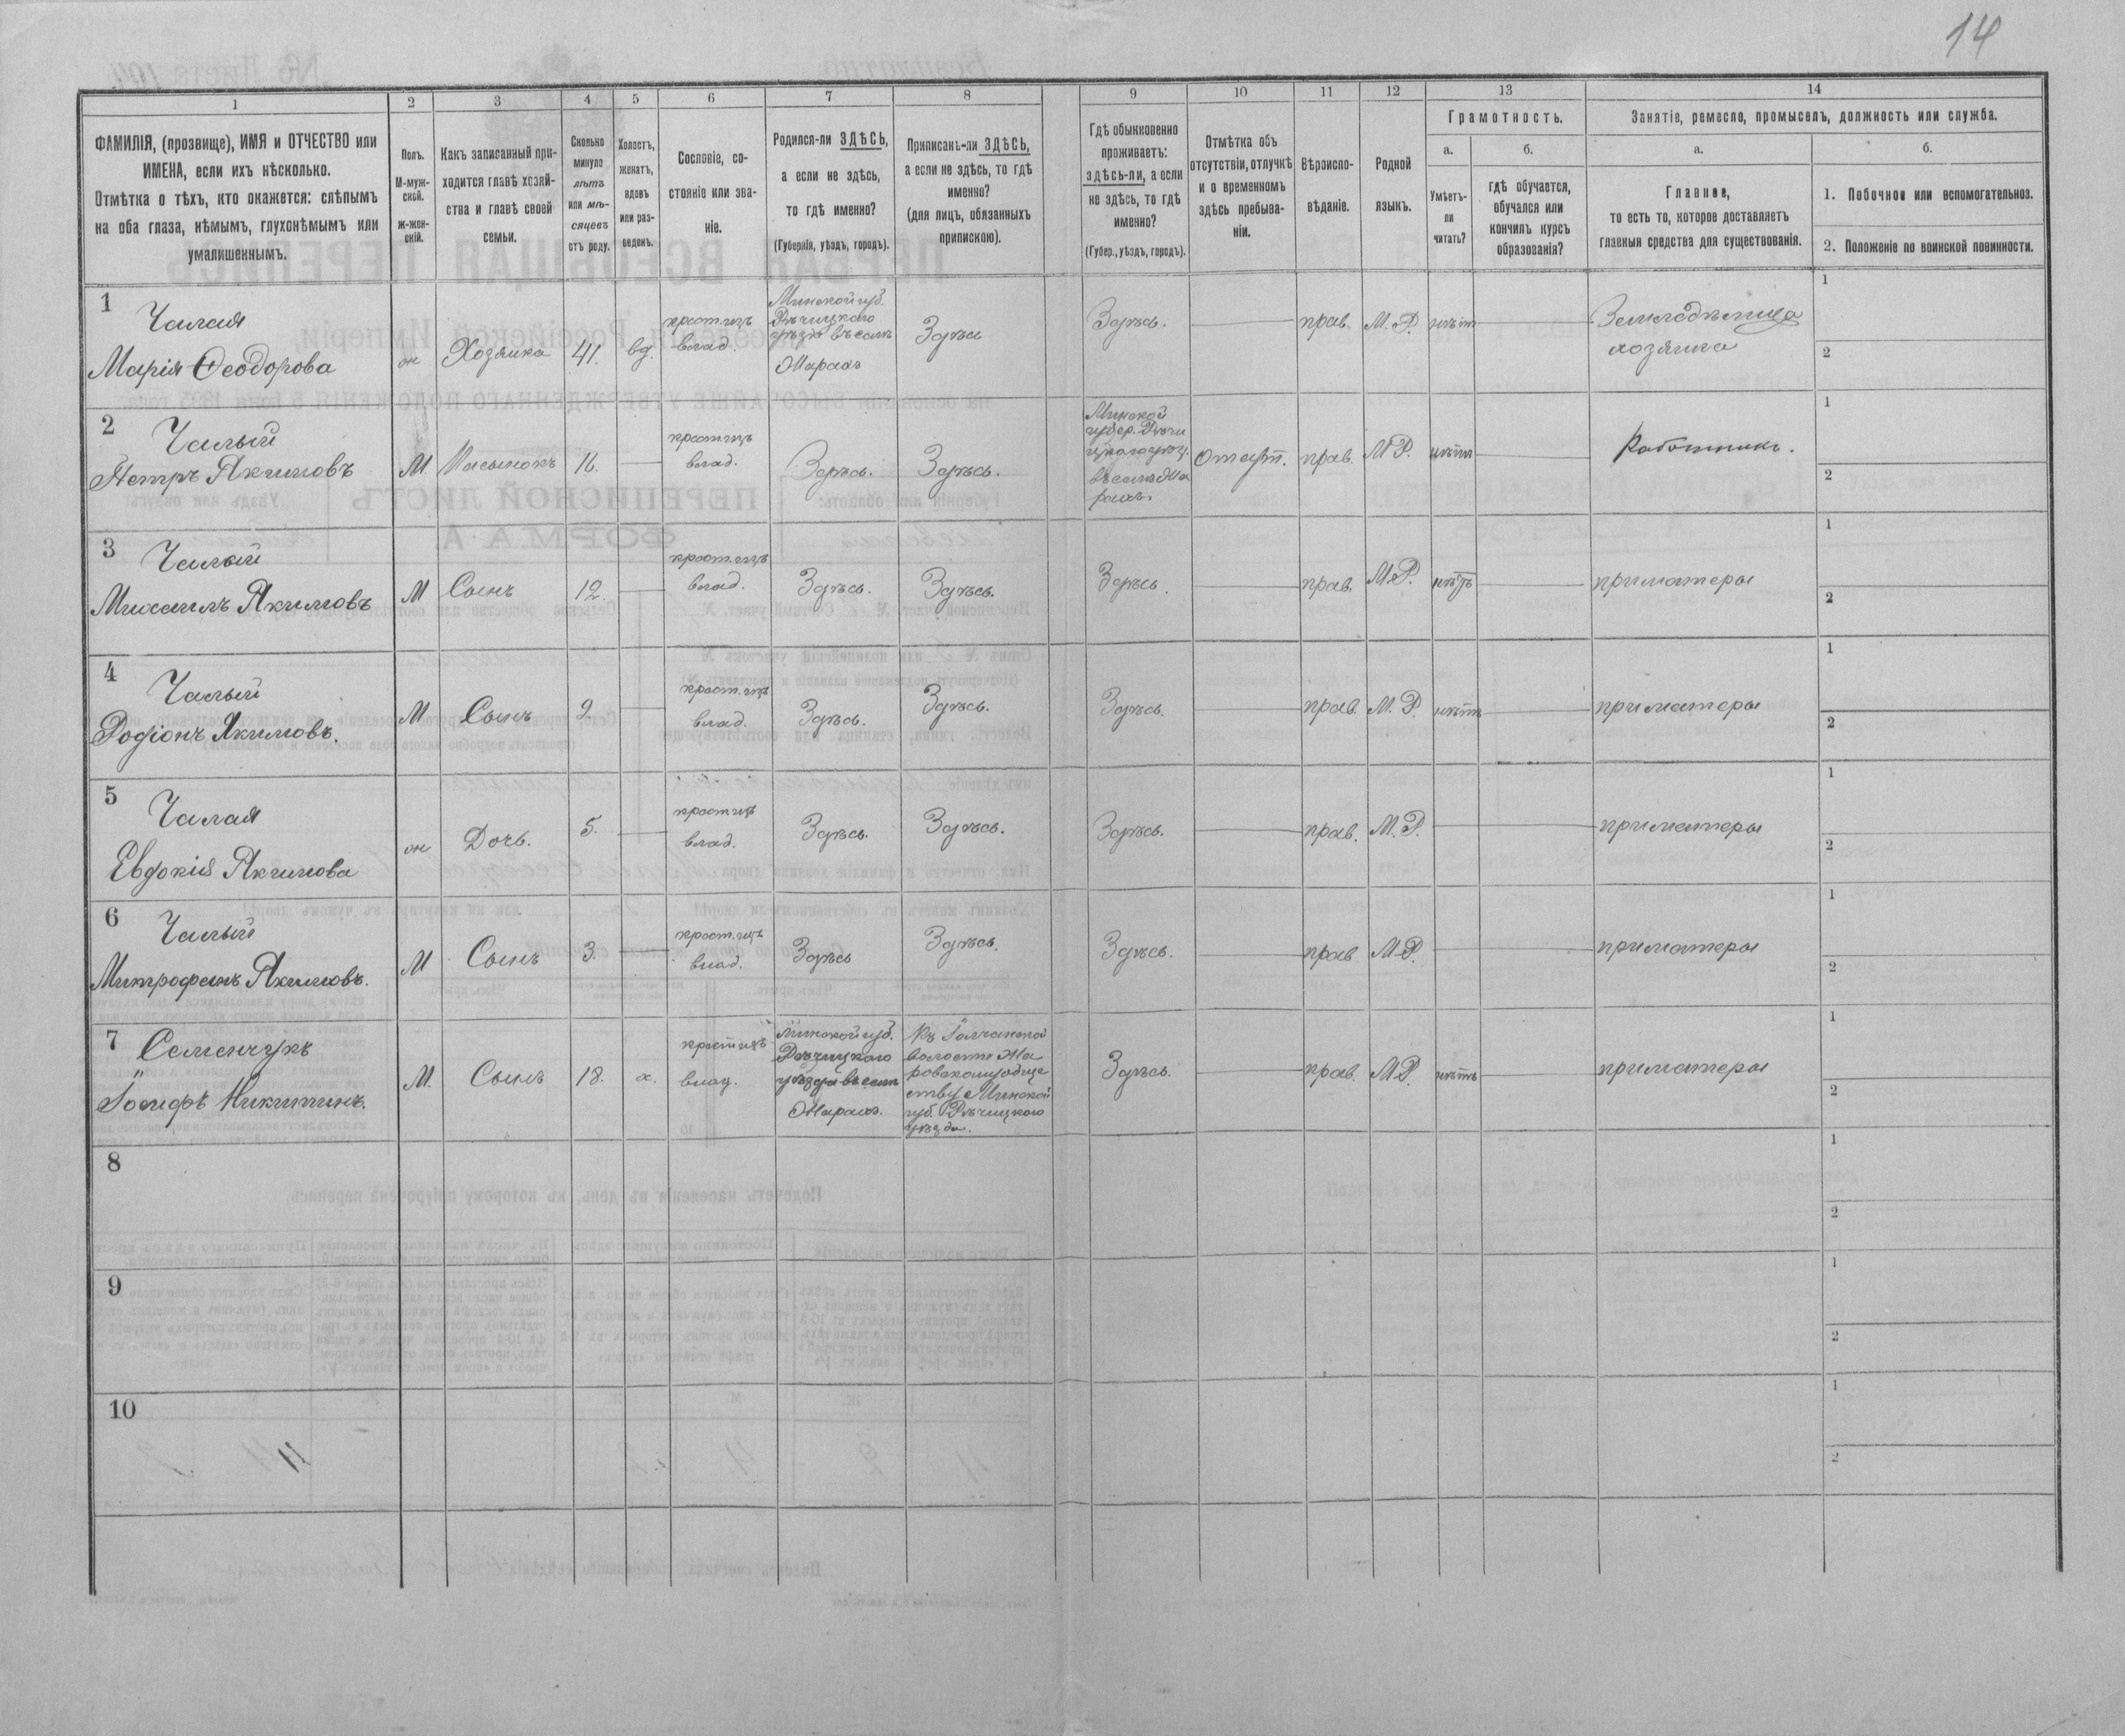 14
1 2 3 4 5 6 7 8 9 10 11 12 13 14
ФАМИЛІЯ, (прозвище), ИМЯ и ОТЧЕСТВО или
ИМЕНА, если ихъ нѣсколько.
Отмѣтка о тѣхъ, кто окажется: слѣпымъ
на оба глаза, нѣмымъ, глухонѣмымъ или
умалишеннымъ.
Полъ.
М-муж-
ской.
ж-жен-
скій.
Какъ записанный при-
ходится главѣ хозяй-
ства и главѣ своей
семьи.
Сколько
минуло
лѣтъ
или мѣ-
сяцевъ
отъ роду.
Холостъ,
женатъ,
вдовъ
или раз-
веденъ.
Сословіе, со-
стояніе или зва-
ніе.
Родился-ли ЗДѢСЬ,
а если не здѣсь,
то гдѣ именно?
(Губернія, уѣздъ, городъ).
Приписанъ-ли ЗДѢСЬ,
а если не здѣсь, то гдѣ
именно?
(для лицъ, обязанныхъ
припискою).
Гдѣ обыкновенно
проживаетъ:
здѣсь-ли, а если
не здѣсь, то гдѣ
именно?
(Губер., уѣздъ, городъ).
Отмѣтка объ
отсутствіи, отлучкѣ
и о временномъ
здѣсь пребыва-
ніи.
Вѣроиспо-
вѣданіе.
Родной
языкъ.
Грамотность.
а.
Умѣетъ-
ли
читать?
б.
гдѣ обучается,
обучался или
кончилъ курсъ
образованія?
Занятіе, ремесло, промыселъ, должность или служба.
а.
Главное,
то есть то, которое доставляетъ
главныя средства для существованія.
б.
1. Побочное или вспомогательное.
2. Положеніе по воинской повинности.
1
Чалая
Марія Ѳеодорова
ж
Хозяйка
41.
вд.
крест. изъ
влад.
Минской губ.
Рѣчицкаго
уѣзда въ селѣ
Здѣсь
Здѣсь.
прав.
М. Р.
нѣтъ
Земледѣлица
хозяйка
1
2
2
Чалый
Петръ Якимовъ
М
Пасынокъ
16.
крест. изъ
влад.
Здѣсь.
Здѣсь.
Минской
губер. Рѣчи
прав.
М Р.
нѣтъ
Работникъ.
1
2
3
Чалый
Михаилъ Якимовъ
М
Сынъ
12.
крест. изъ
влад.
Здѣсь.
Здѣсь.
Здѣсь.
прав.
М. Р.
нѣтъ
при матери
1
2
4
Чалый
Родіонъ Якимовъ.
М
Сынъ
9.
крест. изъ
влад.
Здѣсь.
Здѣсь.
Здѣсь.
прав.
М. Р.
нѣтъ
при матери
1
2
5
Чалая
Евдокія Якимова
ж
Дочь.
5.
крест изъ
влад.
Здѣсь.
Здѣсь.
Здѣсь.
прав.
М. Р.
при матери
1
2
6
Чалый
Митрофанъ Якимовъ.
М
Сынъ
3.
крест. изъ
влад.
Здѣсь
Здѣсь.
Здѣсь.
прав
М Р.
при матери
1
2
7
Семенчукъ
Іосифъ Никитинъ.
М.
Сынъ
18.
х.
крест изъ
влад.
Минской губ.
Рѣчицкаго
уѣзда въ селѣ
волости
Минской
губ. Рѣчицкаго
уѣзда.
Здѣсь.
прав.
М Р.
нѣтъ
при матери
1
2
8
1
2
9
1
2
10
1
2